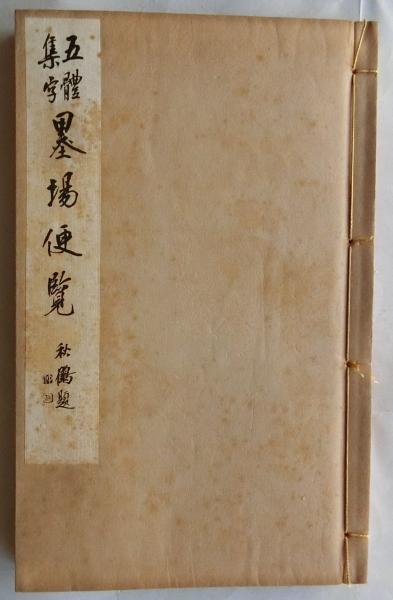 五體
集字
墨場便覽
秋鶴題